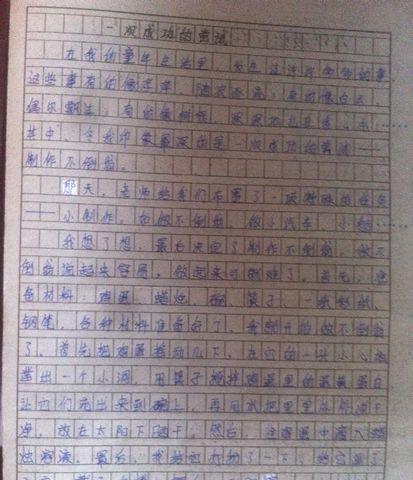 一次成功的尝试
在我的童年生活里，发生过许许多多的事，
这些事有的像浮萍，随波逐流；有的像白云，
偶尔飘过；有的像树根，深深地扎在
其中，令我印象最深的是一次成功的尝试——
制作不倒翁。
那天，老师给我们布置了一项特殊的任务
——小制作。如做不倒翁，做小汽车，小
我想了想，最后决定了制作不倒翁。做不
倒翁说起来容易，做起来可就难了。首先，准
备材料：鸡蛋、蜡烛、碗、筷子、一张彩纸、
钢笔，各种材料准备好了，我就开始做不倒翁
了。首先把鸡蛋摇动几下，在它的一头小心地
凿出一个小洞，用筷子搅拌鸡蛋里的蛋黄蛋白
让它们流出来到碗上，再用水把里里外外冲干
净，放在太阳下晒干。然后，往鸡蛋中滴入蜡
烛溶液。最后，我给它打扮了一下，给它画了